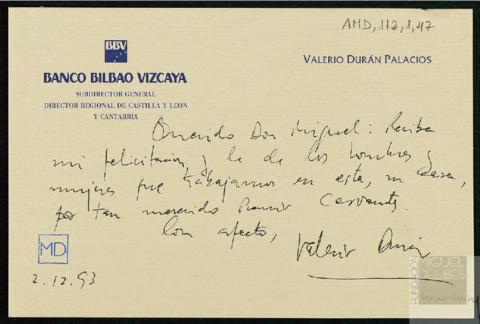 AMD, 112, 1, 47
BBV
BANCO BILBAO VIZCAYA
SUBDIRECTOR GENERAL
DIRECTOR REGIONAL DE CASTILLA Y LEON
Y CANTABRIA
VALERIO DURÁN PALACIOS
Querido Don Miguel: Reciba
mi felicitación, y la de los hombres y
mujeres que trabajamos en esta, su casa,
por tan merecido Premio Cervantes.
Con afecto,
Valerio Durán
MD
2.12.93
FUNDACIÓN
MIGUEL
DELIBES